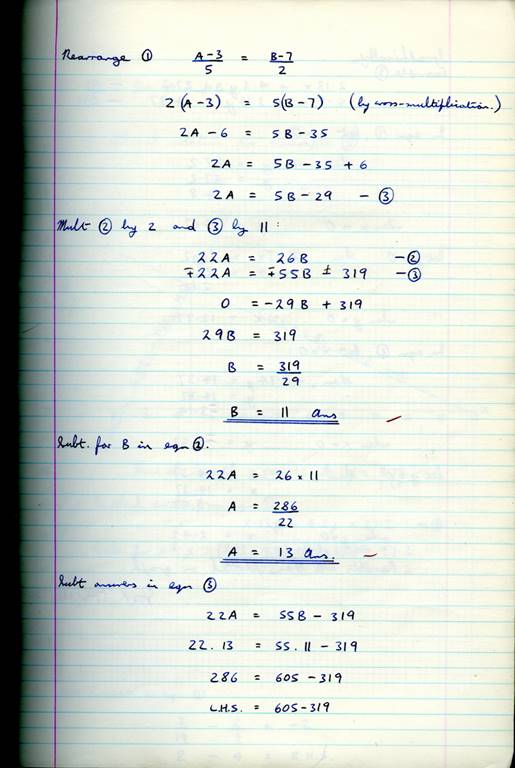 Rearrange ① A-3/5 = B-7/2
2(A-3) = 5(B-7) (by cross-multiplication.)
2A-6 = 5B-35
2A = 5B-35+6
2A = 5B-29 - ③
Mult ② by 2 and ③ by 11:
22A = 26B -②
∓22A = ∓55B ± 319 -③
0 = -29B + 319
29B = 319
B = 319/29
B = 11 Ans
Subt. for B in eqn ②.
22A = 26 × 11
A = 286/22
A = 13 Ans.
Subt answers in eqn ③
22A = 55B - 319
22.13 = 55.11 - 319
286 = 605 - 319
L.H.S. = 605-319